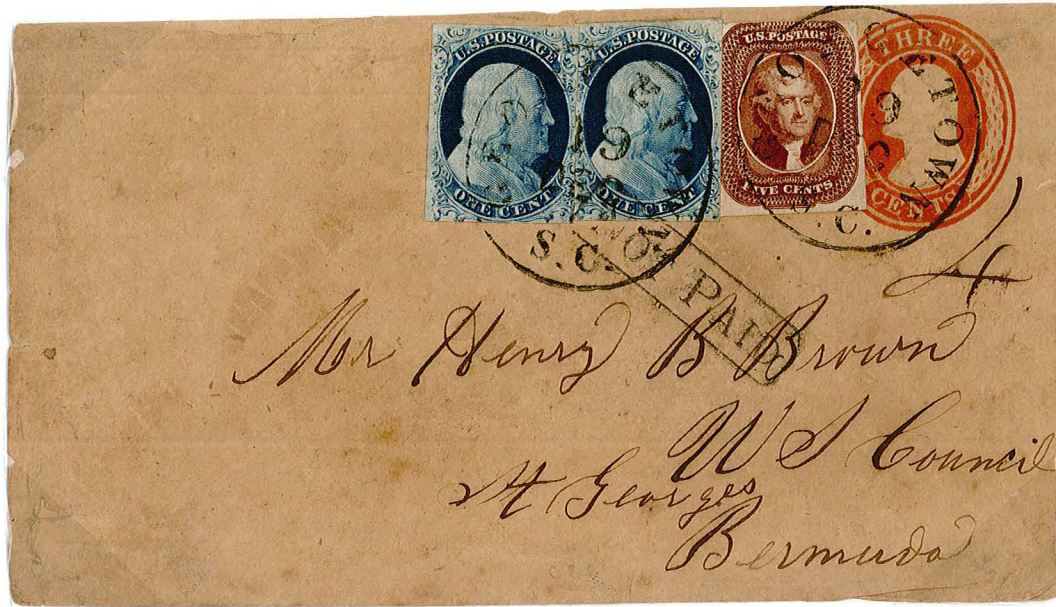 U.S. POSTAGE
ONE CENT
U.S. POSTAGE
ONE CENT
U.S. POSTAGE
FIVE CENTS
THREE
CENTS
GEORGETOWN
19
S.C.
GEORGETOWN
19
S.C.
PAID
4
Mr Henry B Brown
U S Council
St Georges
Bermuda